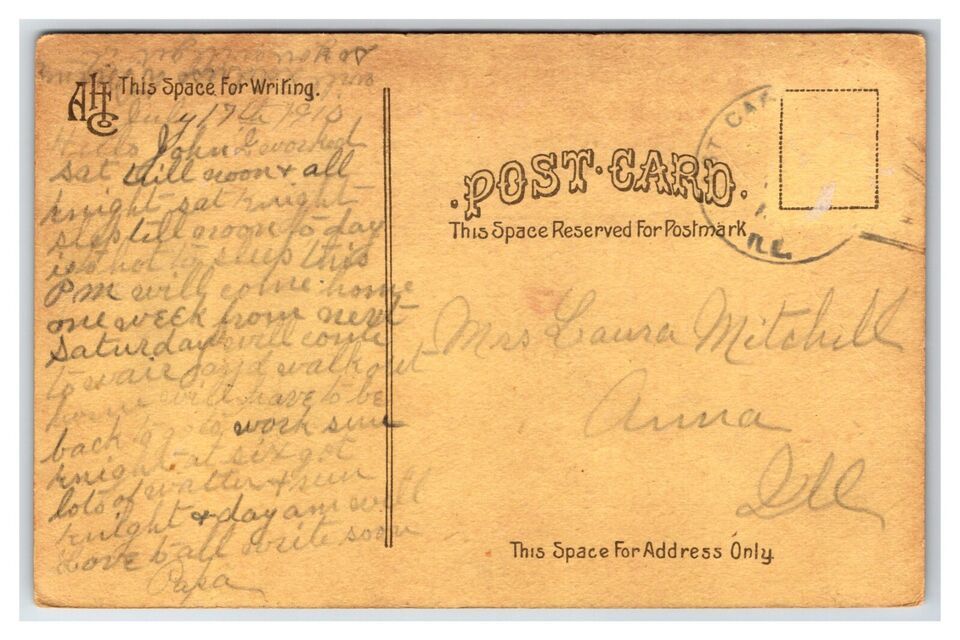 AHCo
This Space For Writing.
July 17th 1910
Hello John worked
sat till noon & all
knight sat knight
slep till noon to day
is to hot to sleep this
PM will come home
one week from next
Saturday will come
to and walk out
home will have to be
back to go to work sun
knight at six got
lots of watter & run
knight & day am well
Love to all write soon
Papa
POST CARD.
This Space Reserved For Postmark
ILL.
Mrs Laura Mitchell
Anna
Ill
This Space For Address Only.